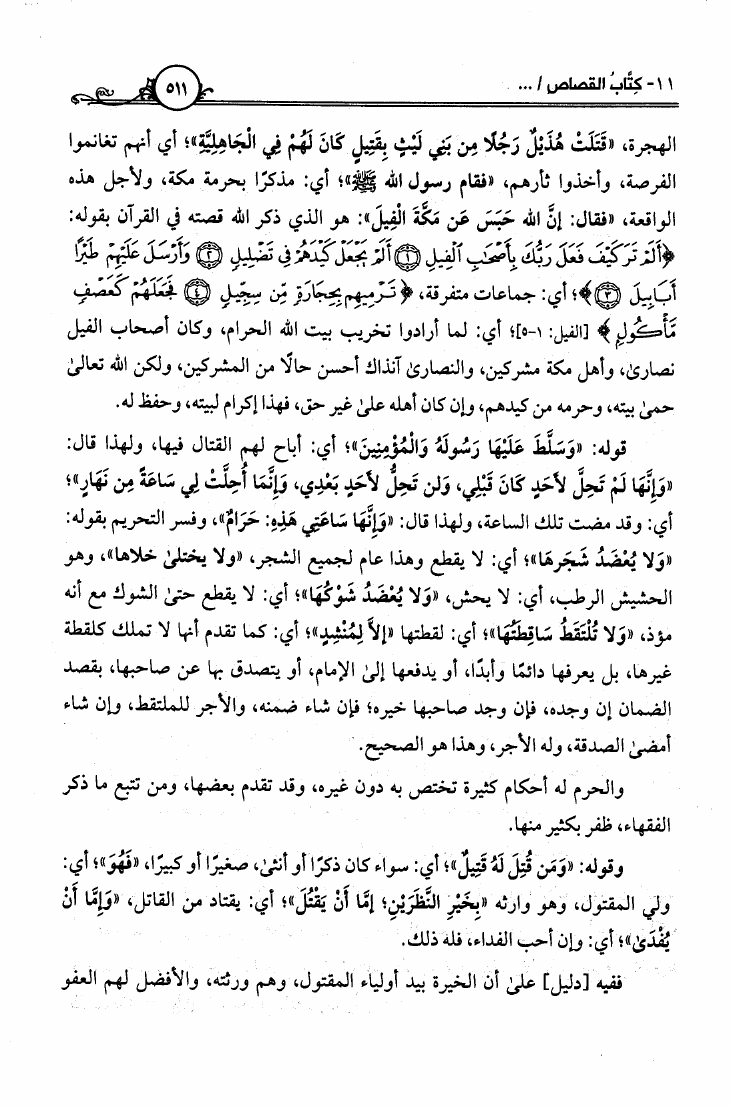 ١١- كِتَابُ القصاص / ...
٥١١
الهجرة، «قَتَلَتْ هُذَيْلٌ رَجُلًا مِن بَنِي لَيْثٍ بِقَتِيلٍ كَانَ لَهُمْ فِي الْجَاهِلِيَّةِ»؛ أي أنهم تغانموا
الفرصة، وأخذوا ثأرهم، «فقام رسول الله ﷺ»؛ أي: مذكرًا بحرمة مكة، ولأجل هذه
الواقعة، «فقال: إنَّ الله حَبَسَ عَن مَكَّةَ الْفِيلَ»: هو الذي ذكر الله قصته في القرآن بقوله:
﴿أَلَمْ تَرَ كَيْفَ فَعَلَ رَبُّكَ بِأَصْحَابِ الْفِيلِ ۝١ أَلَمْ يَجْعَلْ كَيْدَهُمْ فِي تَضْلِيلٍ ۝٢ وَأَرْسَلَ عَلَيْهِمْ طَيْرًا
أَبَابِيلَ ۝٣﴾؛ أي: جماعات متفرقة، ﴿تَرْمِيهِم بِحِجَارَةٍ مِّن سِجِّيلٍ ۝٤ فَجَعَلَهُمْ كَعَصْفٍ
مَّأْكُولٍ﴾ [الفيل: ١-٥]؛ أي: لما أرادوا تخريب بيت الله الحرام، وكان أصحاب الفيل
نصارىٰ، وأهل مكة مشركين، والنصارىٰ آنذاك أحسن حالًا من المشركين، ولكن الله تعالىٰ
حمىٰ بيته، وحرمه من كيدهم، وإن كان أهله علىٰ غير حق، فهذا إكرام لبيته، وحفظ له.
قوله: «وَسَلَّطَ عَلَيْهَا رَسُولَهُ وَالْمُؤْمِنِينَ»؛ أي: أباح لهم القتال فيها، ولهذا قال:
«وَإِنَّهَا لَمْ تَحِلَّ لأَحَدٍ كَانَ قَبْلِي، وَلَن تَحِلَّ لأَحَدٍ بَعْدِي، وَإِنَّمَا أُحِلَّتْ لِي سَاعَةً مِن نَهَارٍ»؛
أي: وقد مضت تلك الساعة، ولهذا قال: «وَإِنَّهَا سَاعَتِي هَذِهِ: حَرَامٌ»، وفسر التحريم بقوله:
«وَلا يُعْضَدُ شَجَرَهَا»؛ أي: لا يقطع وهذا عام لجميع الشجر، «ولا يختلىٰ خلاها»، وهو
الحشيش الرطب، أي: لا يحش، «وَلا يُعْضَدُ شَوْكُهَا»؛ أي: لا يقطع حتىٰ الشوك مع أنه
مؤذ، «وَلا تُلْتَقَطُ سَاقِطَتُهَا»؛ أي: لقطتها «إِلَّا لِمُنْشِدٍ»؛ أي: كما تقدم أنها لا تملك كلقطة
غيرها، بل يعرفها دائمًا وأبدًا، أو يدفعها إلىٰ الإمام، أو يتصدق بها عن صاحبها، بقصد
الضمان إن وجده، فإن وجد صاحبها خيره؛ فإن شاء ضمنه، والأجر للملتقط، وإن شاء
أمضىٰ الصدقة، وله الأجر، وهذا هو الصحيح.
والحرم له أحكام كثيرة تختص به دون غيره، وقد تقدم بعضها، ومن تتبع ما ذكر
الفقهاء، ظفر بكثير منها.
وقوله: «وَمَن قُتِلَ لَهُ قَتِيلٌ»؛ أي: سواء كان ذكرًا أو أنثىٰ، صغيرًا أو كبيرًا، «فَهُوَ»؛ أي:
ولي المقتول، وهو وارثه «بِخَيْرِ النَّظَرَيْنِ؛ إِمَّا أَنْ يَقْتُلَ»؛ أي: يقتاد من القاتل، «وَإِمَّا أَنْ
يُفْدَىٰ»؛ أي: وإن أحب الفداء، فله ذلك.
ففيه [دليل] علىٰ أن الخيرة بيد أولياء المقتول، وهم ورثته، والأفضل لهم العفو